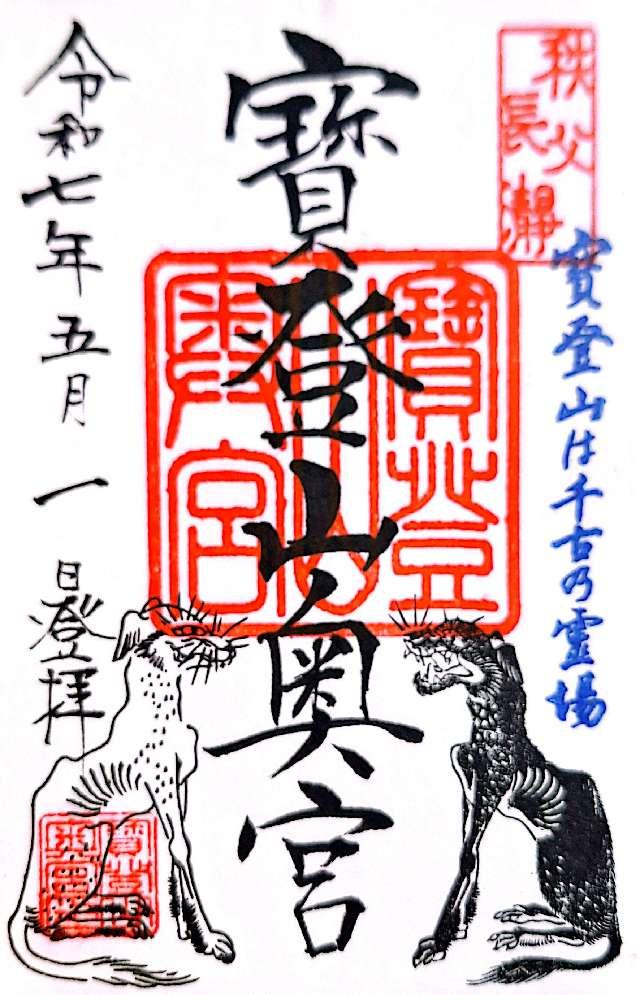 秩父
長瀞
寳登山は千古乃霊場
寳登山奥宮
寳登山
奥宮
令和七年五月一日登拝